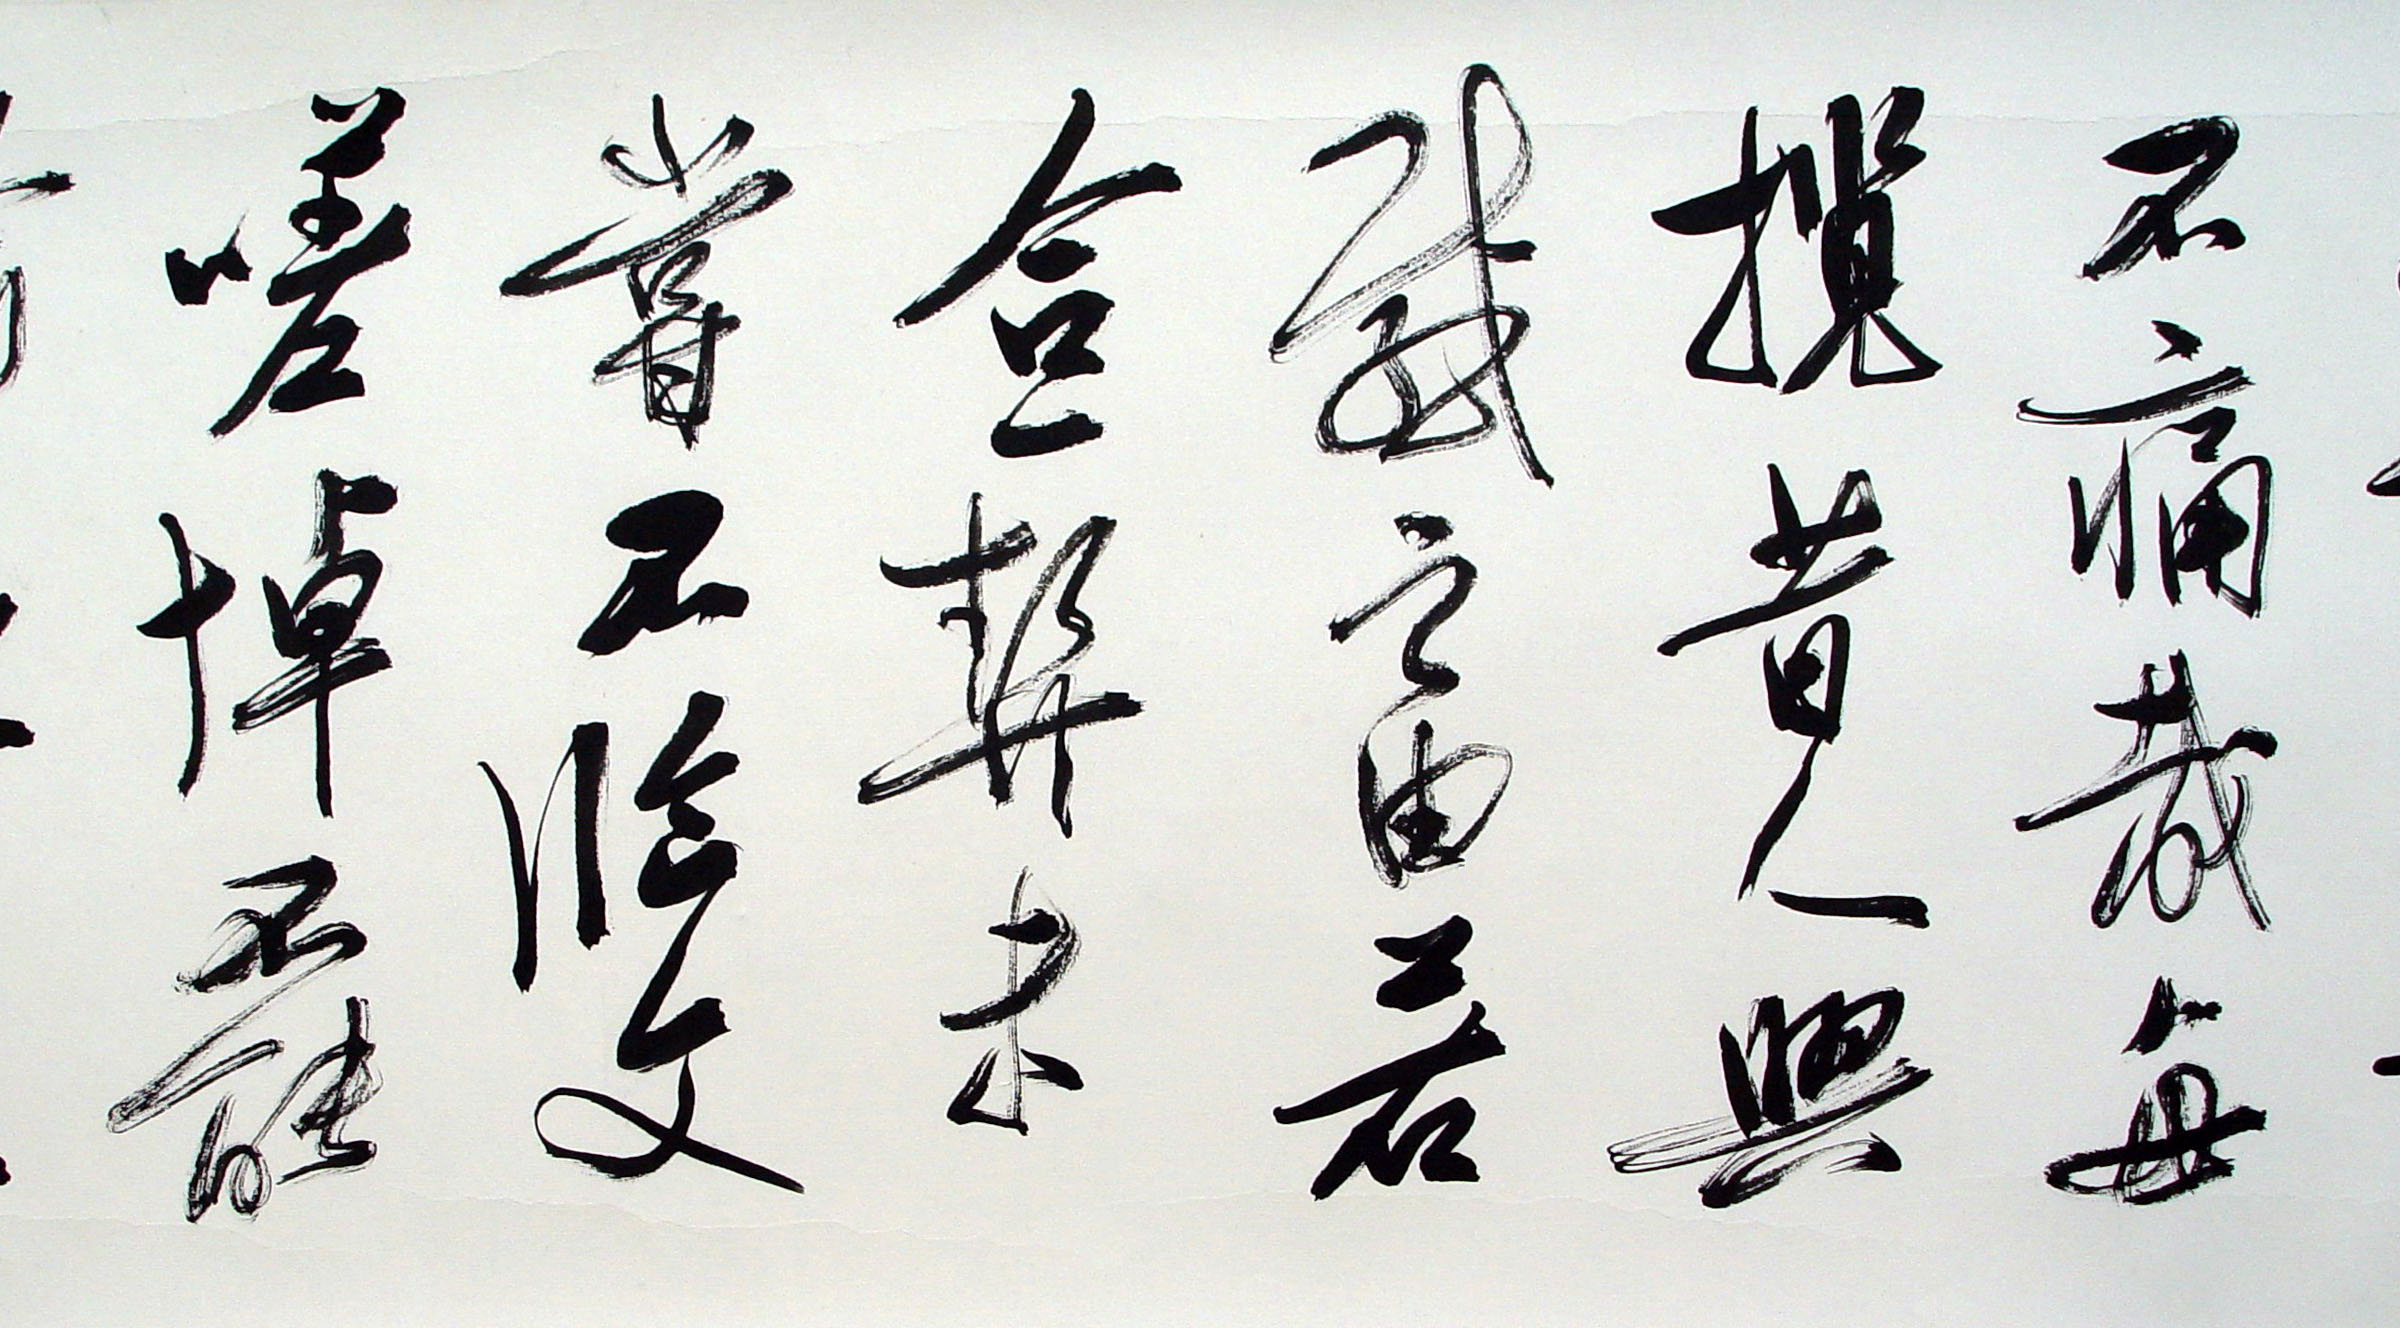 不痛哉每
攬昔人興
感之由若
合一契未
嘗不臨文
嗟悼不能